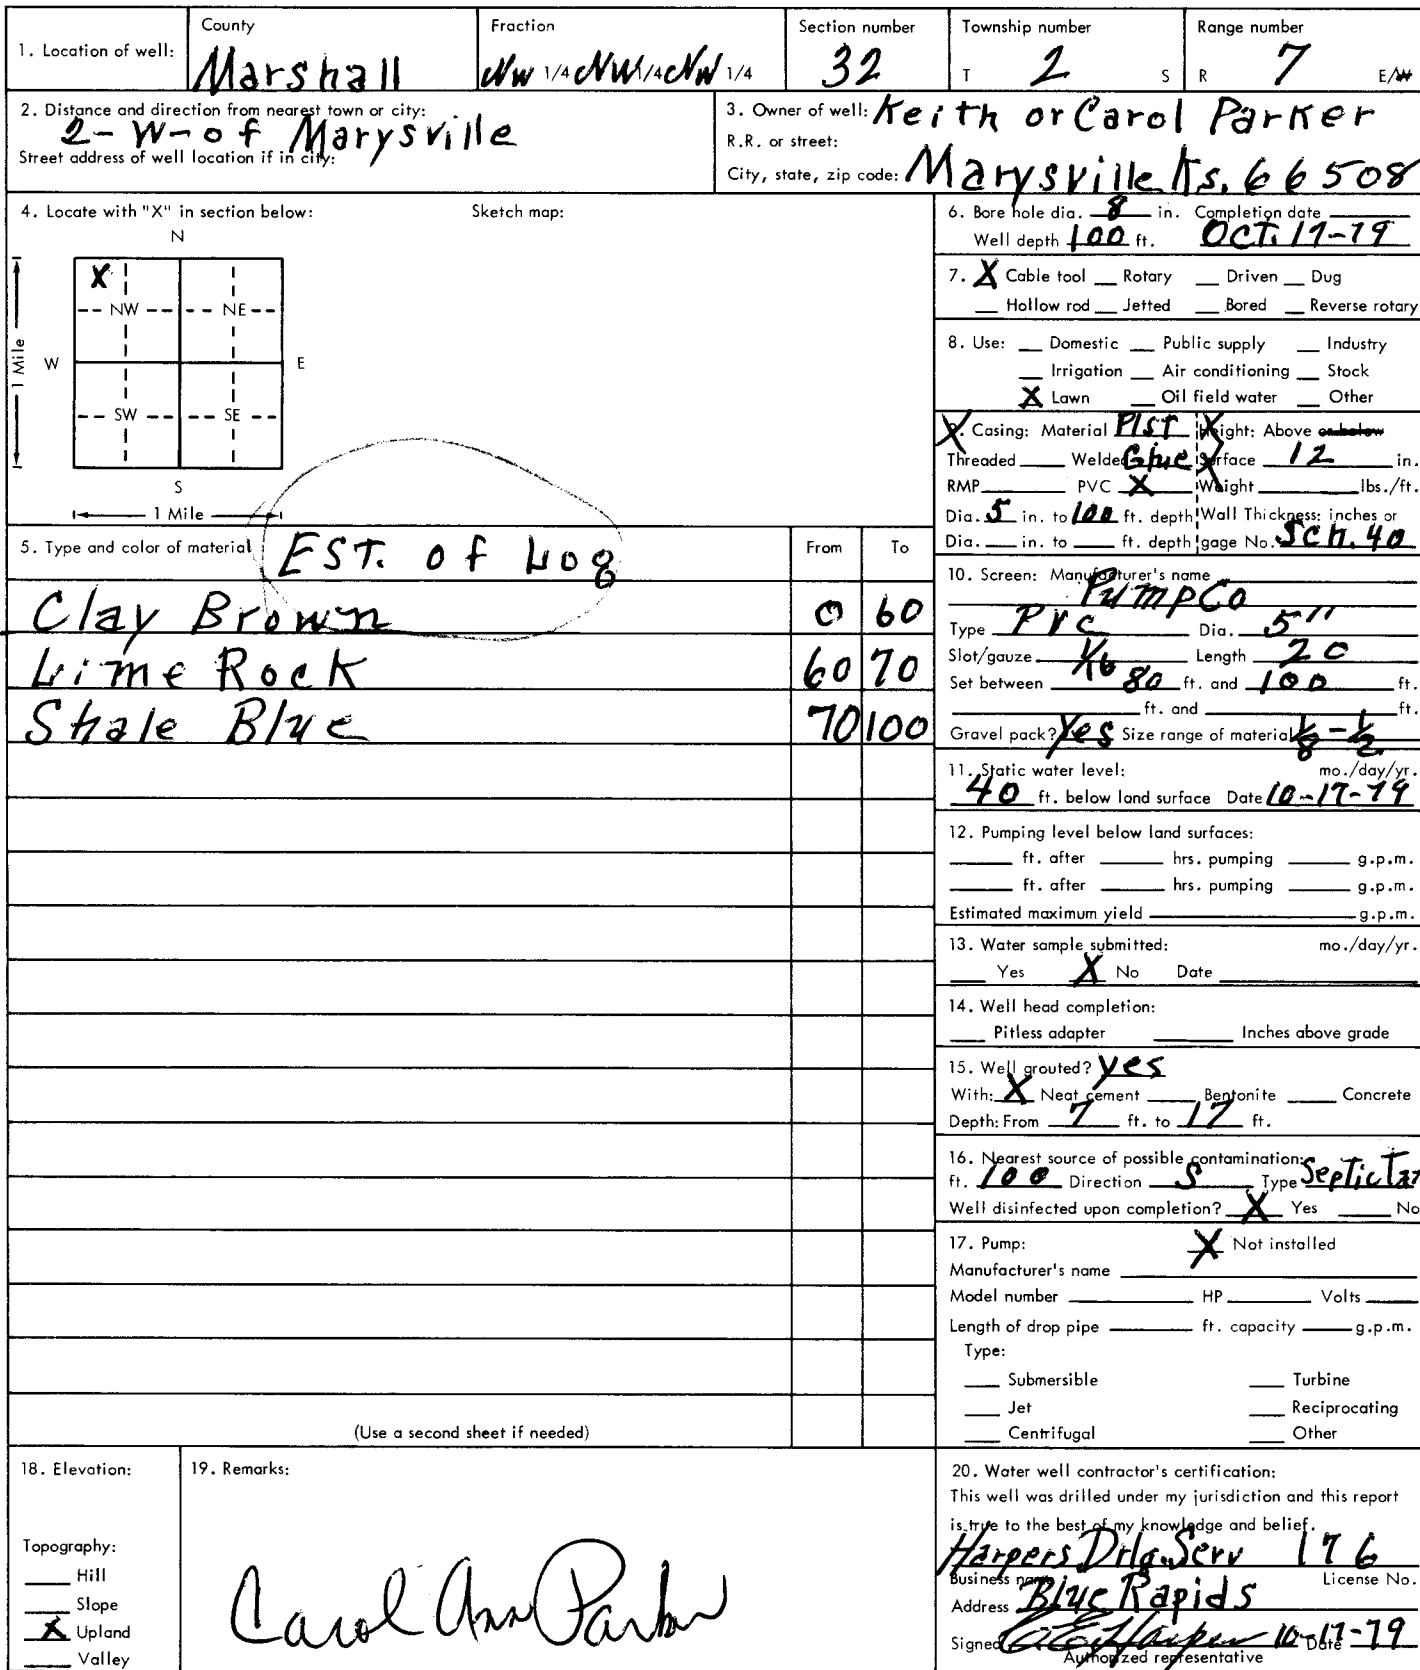 1. Location of well:
County
Marshall
Fraction
NW 1/4 NW 1/4 NW 1/4
Section number
32
Township number
T 2 S
Range number
R 7 E/W
2. Distance and direction from nearest town or city:
2-W-of Marysville
Street address of well location if in city:
3. Owner of well: Keith or Carol Parker
R.R. or street:
City, state, zip code: Marysville Ks. 66508
4. Locate with "X" in section below:
Sketch map:
N
X
NW NE
W E
1 Mile
SW SE
S
1 Mile
6. Bore hole dia. 8 in. Completion date
Well depth 100 ft. OCT. 17-79
7. X Cable tool __ Rotary __ Driven __ Dug
__ Hollow rod __ Jetted __ Bored __ Reverse rotary
8. Use: __ Domestic __ Public supply __ Industry
__ Irrigation __ Air conditioning __ Stock
X Lawn __ Oil field water __ Other
9. Casing: Material Plst Height: Above or below
Threaded ____ Welded Glue Surface 12 in.
RMP ____ PVC X Weight ____ lbs./ft.
Dia. 5 in. to 100 ft. depth Wall Thickness: inches or
Dia. __ in. to __ ft. depth gage No. Sch. 40
10. Screen: Manufacturer's name
PumpCo
Type PVC Dia. 5"
Slot/gauze 1/16 Length 20
Set between 80 ft. and 100 ft.
____ ft. and ____ ft.
Gravel pack? Yes Size range of material 1/8 - 1/2
11. Static water level: mo./day/yr.
40 ft. below land surface Date 10-17-79
12. Pumping level below land surfaces:
____ ft. after ____ hrs. pumping ____ g.p.m.
____ ft. after ____ hrs. pumping ____ g.p.m.
Estimated maximum yield ____ g.p.m.
13. Water sample submitted: mo./day/yr.
__ Yes X No Date ____
14. Well head completion:
__ Pitless adapter ____ Inches above grade
15. Well grouted? Yes
With: X Neat cement ____ Bentonite ____ Concrete
Depth: From 7 ft. to 17 ft.
16. Nearest source of possible contamination:
ft. 100 Direction S Type Septic Tan
Well disinfected upon completion? X Yes ____ No
17. Pump: X Not installed
Manufacturer's name ____
Model number ____ HP ____ Volts ____
Length of drop pipe ____ ft. capacity ____ g.p.m.
Type:
__ Submersible __ Turbine
__ Jet __ Reciprocating
__ Centrifugal __ Other
5. Type and color of material EST. of Log
From To
Clay Brown 0 60
Lime Rock 60 70
Shale Blue 70 100
(Use a second sheet if needed)
18. Elevation:
Topography:
__ Hill
__ Slope
X Upland
__ Valley
19. Remarks:
Carol Ann Parker
20. Water well contractor's certification:
This well was drilled under my jurisdiction and this report
is true to the best of my knowledge and belief.
Harpers Drlg. Serv 176
Business name License No.
Address Blue Rapids
Signed Harper 10-17-79 Date
Authorized representative